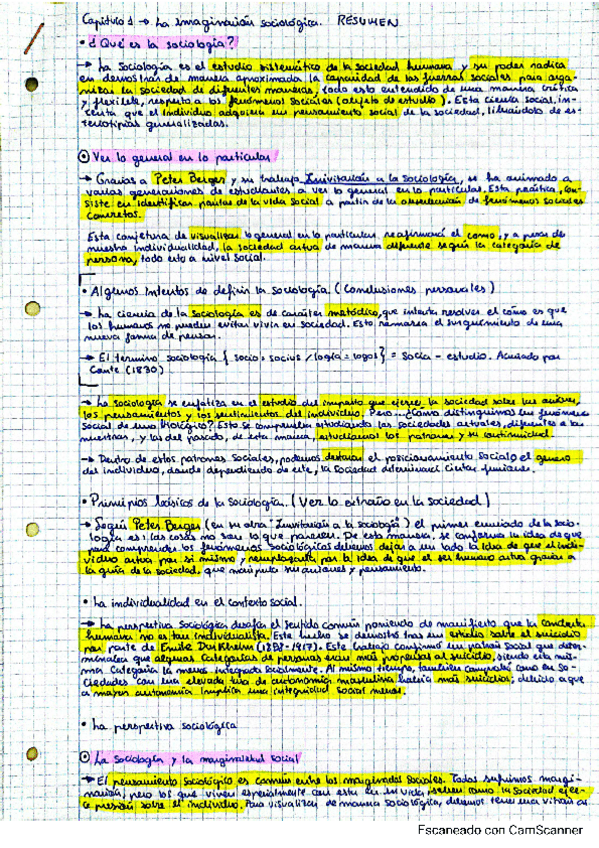 Capitulo 1 → La imaginación sociológica. RESUMEN
• ¿Qué es la sociología?
→ La Sociología es el estudio sistemático de la sociedad humana y su poder radica
en demostrar de manera aproximada la capacidad de las fuerzas sociales para orga-
nizar la sociedad de diferentes maneras, todo esto entendido de una manera crítica
y flexible, respecto a los fenómenos sociales (objeto de estudio). Esta ciencia social, in-
tenta que el individuo adquiera un pensamiento social de la sociedad, librándolo de es-
tereotipias generalizadas.
Ver lo general en lo particular
→ Gracias a Peter Berger y su trabajo Invitación a la sociología, se ha animado a
varias generaciones de estudiantes a ver lo general en lo particular. Esta práctica, con-
siste en identificar pautas de la vida social a partir de la observación de fenómenos sociales
concretos.
Esta conjetura de visualizar lo general en lo particular reafirmará el como, y a pesar de
nuestra individualidad, la sociedad actua de manera diferente según la categoría de
persona, todo esto a nivel social.
• Algunos intentos de definir la sociología. (Conclusiones personales)
→ La ciencia de la sociología es de carácter metódico, que intenta resolver el cómo es que
los humanos no pueden evitar vivir en sociedad. Esto remarca el surgimiento de una
nueva forma de pensar.
→ El termino sociología { socio = socius / logía = logos } = Socia - estudio. Acuñado por
Comte (1830)
→ La sociología se enfatiza en el estudio del impacto que ejerce la sociedad sobre las acciones,
los pensamientos y los sentimientos del individuo. Pero... ¿Cómo distinguimos un fenómeno
social de uno biológico? Esto se comprende estudiando las sociedades actuales, diferentes a las
nuestras, y las del pasado, de esta manera, estudiamos los patrones y su continuidad.
→ Dentro de estos patrones sociales, podemos destacar el posicionamiento social o el genero
del individuo, donde dependiendo de este, la sociedad determinará ciertas funciones.
• Principios básicos de la sociología. (Ver lo extraño en la sociedad)
→ Según Peter Berger (en su obra "Invitación a la sociología") el primer enunciado de la socio-
logía es: las cosas no son lo que parecen. De esta manera, se conforma la idea de que
para comprender los fenómenos sociológicos debemos dejar a un lado la idea de que el indi-
viduo actua por si mismo y remplazarla por la idea de que el ser humano actua gracias a
la guía de la sociedad, que manipula sus acciones y pensamiento.
• La individualidad en el contexto social.
→ La perspectiva sociológica desafia el sentido común poniendo de manifiesto que la conducta
humana no es tan individualista. Este hecho se demostró tras un estudio sobre el suicidio
por parte de Emile Durkheim (1858-1917). Este trabajo confirmó un patrón social que deter-
minaba que algunas categorías de personas eran más propensas al suicidio, siendo esta mis-
ma categoría la menos integrada socialmente. Al mismo tiempo, también comprobó como en so-
ciedades con una elevada tasa de autonomía masculina habría más suicidios; debido a que
a mayor autonomía implica una integridad social menor.
• La perspectiva sociológica
La sociología y la marginalidad social
→ El pensamiento sociológico es común entre los marginados sociales. Todos sufrimos margi-
nación, pero los que viven especialmente con esta en su vida, saben como la sociedad ejer-
ce presión sobre el individuo. Para visualizar de manera sociológica, debemos tener una visión de
Escaneado con CamScanner